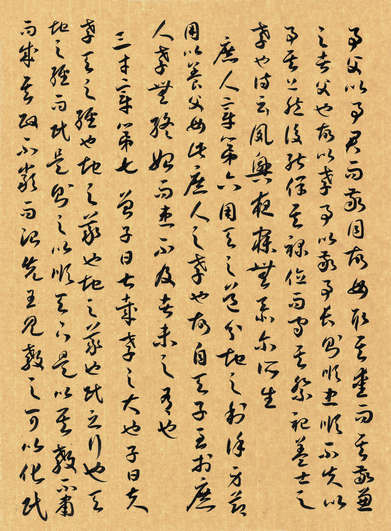 事父以事君而敬同故母取其愛而其敬兼
之者父也故以孝事以敬事長則順忠順不失以
事其上然後能保其祿位而守其祭祀蓋士之
孝也詩云夙興夜寐無忝爾所生
庶人章第六用天之道分地之利謹身節
用以養父母此庶人之孝也故自天子至於庶
人孝無終始而患不及者未之有也
三才章第七 曾子曰甚哉孝之大也子曰夫
孝天之經也地之義也地之義也民之行也天
地之經而民是則之以順天下是以其教不肅
而成其政不嚴而治先王見教之可以化民